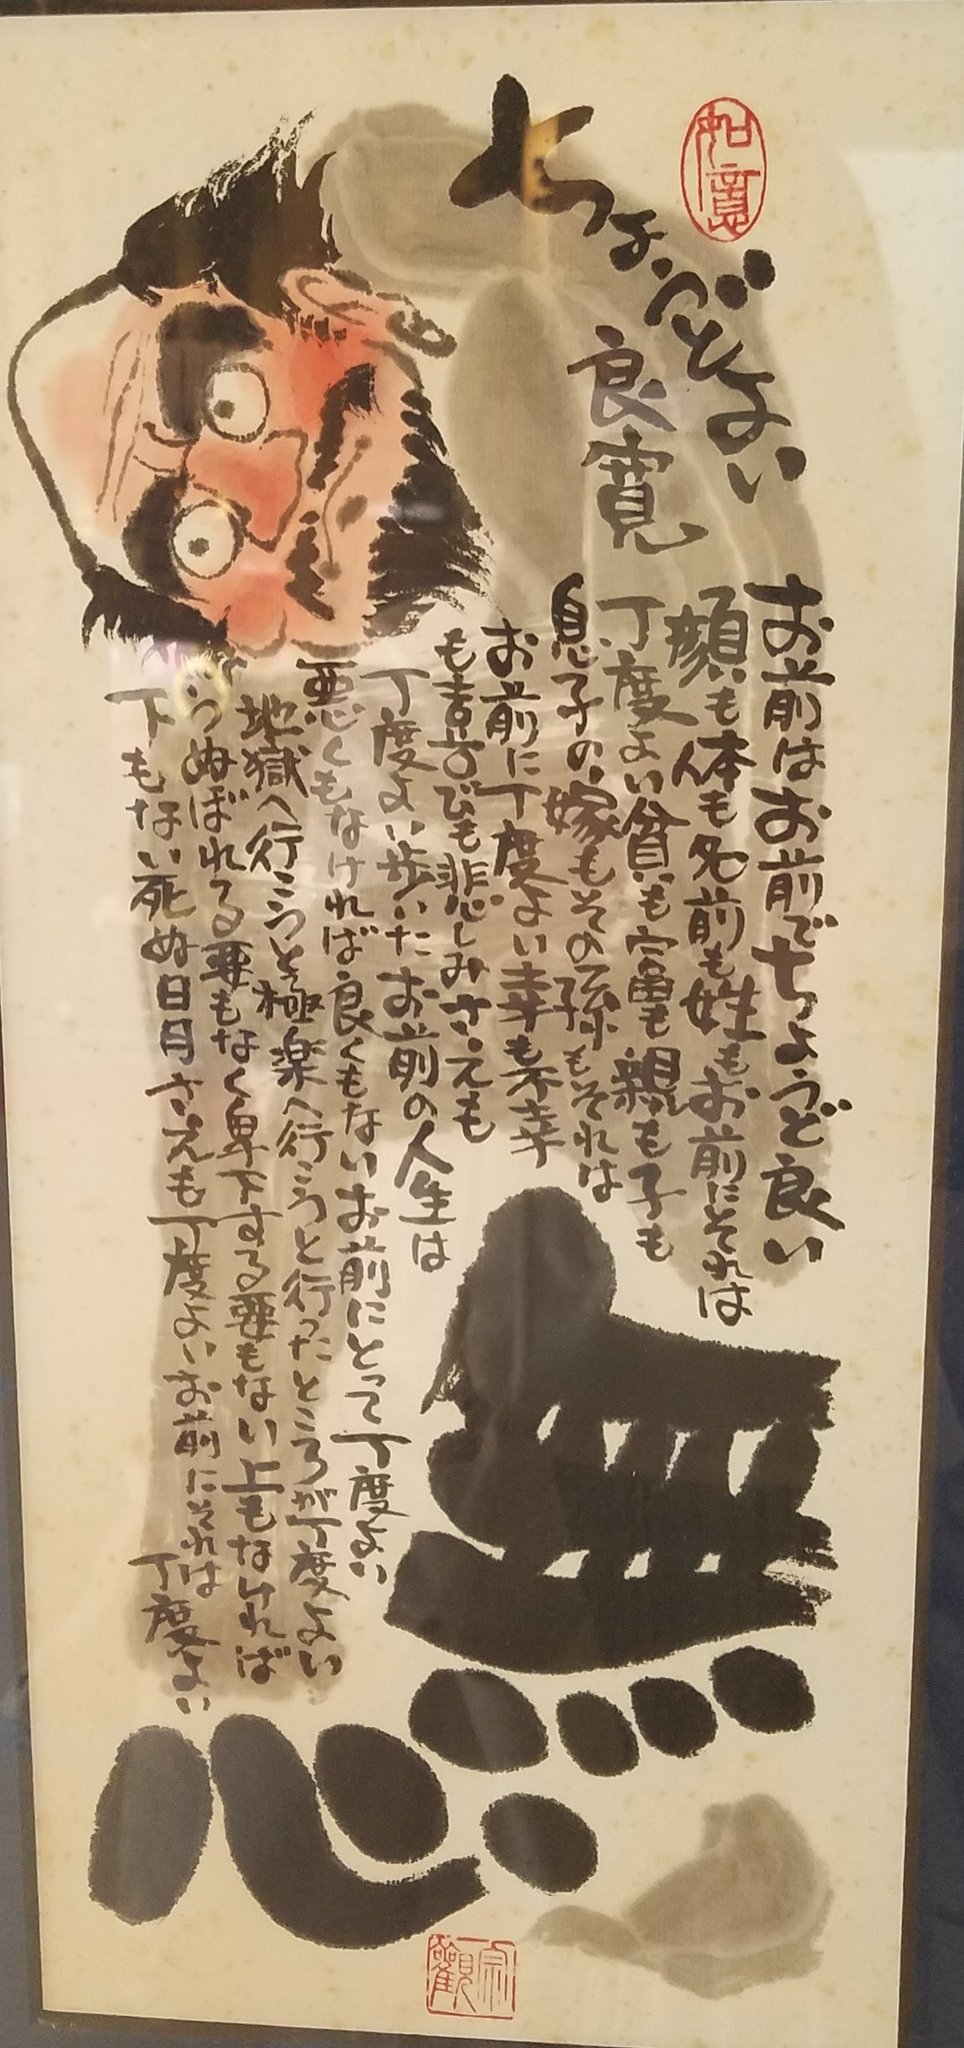 如意
ちょっどよい
良寛
お前はお前でちょうど良い
顔も体も名前も姓もお前にそれは
丁度よい貧も富も親も子も
息子の嫁もその孫もそれは
お前に丁度よい幸も不幸
も喜びも悲しみさえも
丁度よい歩いたお前の人生は
悪くもなければ良くもないお前にとって丁度よい
地獄へ行こうと極楽へ行こうと行ったところが丁度よい
うぬぼれる要もなく卑下する要もない上もなければ
下もない死ぬ日月さえも丁度よいお前にそれは
丁度よい
無心
宗觀